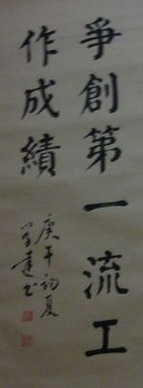 爭創第一流工
作成績
庚午初夏